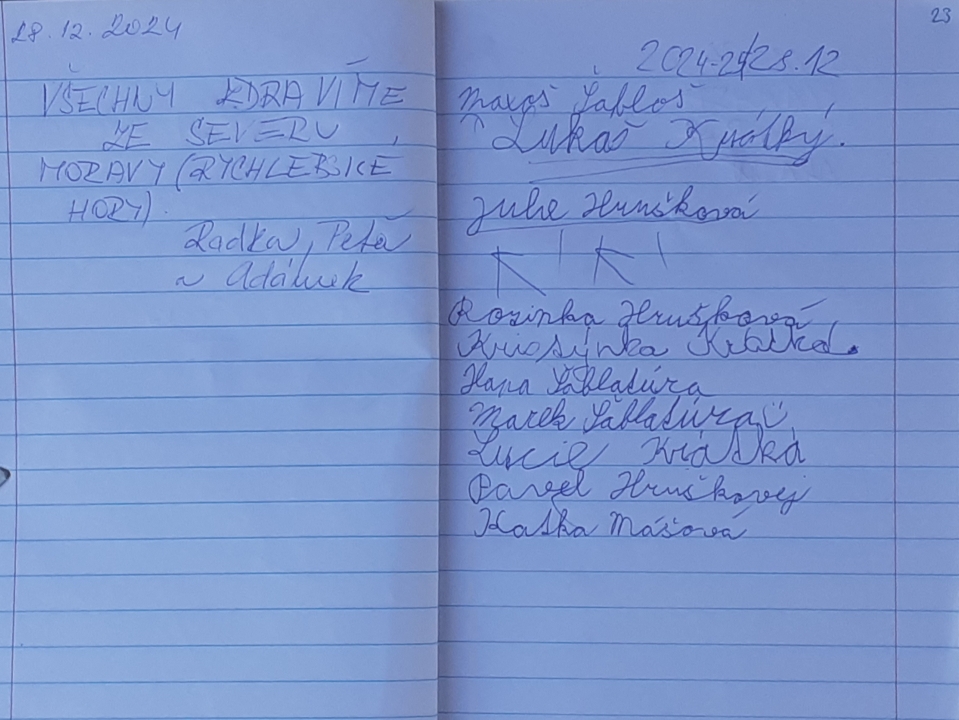 28.12.2024
VŠECHNY ZDRAVÍME
ZE SEVERU
MORAVY (RYCHLEBSKÉ
HORY).
Radka, Peťa
a Adámek
23
2024-28.12
Lukáš Krátký.
Julie Hrušková
Rozinka Hrušková
Kristýnka Krátká.
Hana Šablatúra
Marek Šablatúra
Lucie Krátká
Pavel Hruškovej
Katka Mášová